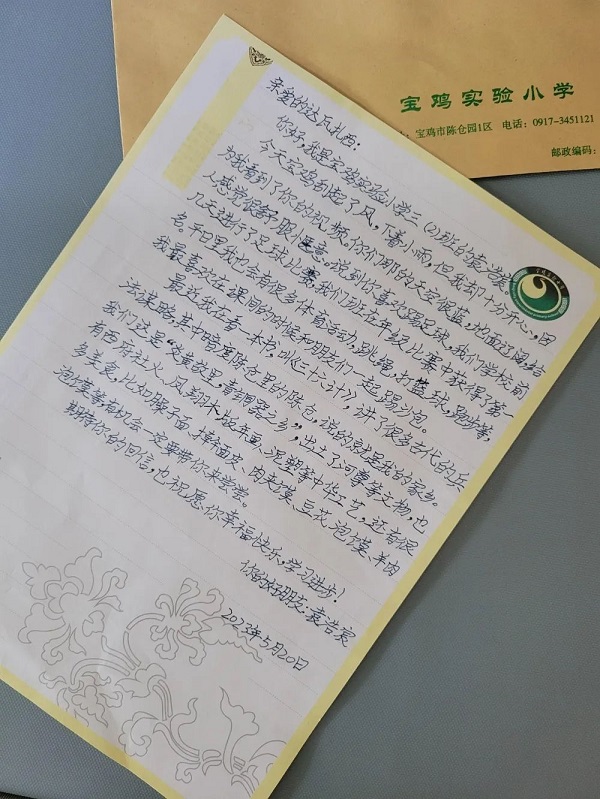 宝鸡实验小学
宝鸡市陈仓园1区 电话：0917-3451121
邮政编码：
亲爱的达瓦扎西：
你好，我是宝鸡实验小学三(2)班的袁浩宸。
今天宝鸡刮起了风，下着小雨，但我却十分开心，因
为我看到了你的视频。你们那的天空很蓝，地面辽阔，给
人感觉很舒服惬意。说到你喜欢踢足球，我们学校前
几天进行了足球比赛，我们班在年级比赛中获得了第一
名。平日里我也会有很多体育活动，跳绳，打篮球，跑步等，
我最喜欢在课间的时候和朋友们一起踢沙包。
最近我在看一本书，叫《三十六计》，讲了很多古代的兵
法谋略，其中暗度陈仓里的陈仓，说的就是我的家乡。
我们这是“炎帝故里，青铜器之乡”，出土了何尊等文物，也
有西府社火、凤翔木版年画、泥塑等中华工艺，还有很
多美食，比如臊子面、擀面皮、肉夹馍、豆花泡馍、羊肉
泡馍等有机会一定要带你来尝尝。
期待你的回信，也祝愿你幸福快乐，学习进步！
你的好朋友：袁浩宸
2023年5月20日